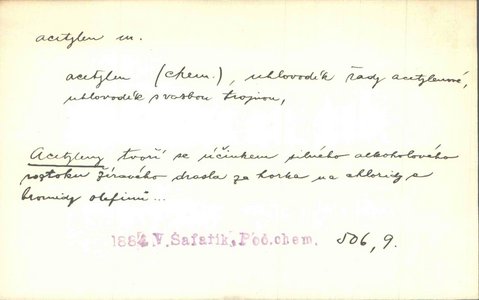 acetylen m.
acetylen (chem.), uhlovodík řady acetylenové,
uhlovodík s vazbou trojnou,
Acetyleny tvoří se účinkem silného alkoholového
roztoku žíravého drasla za horka na chloridy a
bromidy olefinů...
1884 V. Šafařík, Poč. chem. 506, 9.